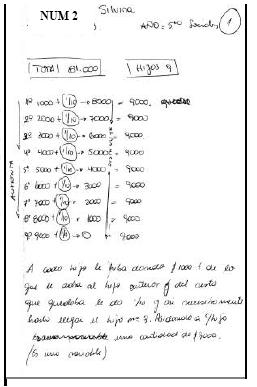 NUM 2
Silvina
AÑO = 5to
1
TOTAL 81.000
Hijos 9
1º 1000 + 1/10 → 8000 = 9000
2º 2000 + 1/10 → 7000 = 9000
3º 3000 + 1/10 → 6000 = 9000
4º 4000 + 1/10 → 5000 = 9000
5º 5000 + 1/10 → 4000 = 9000
6º 6000 + 1/10 → 3000 = 9000
7º 7000 + 1/10 = 2000 = 9000
8º 8000 + 1/10 = 1000 = 9000
9º 9000 + 1/10 → 0 = 9000
AUMENTA
A cada hijo le daba $1000 + de lo
que le daba al hijo anterior y del resto
que quedaba le dio 1/10 y así
hasta llegar al hijo nº 9. c/hijo
una cantidad de $9000.
(Es una variable)